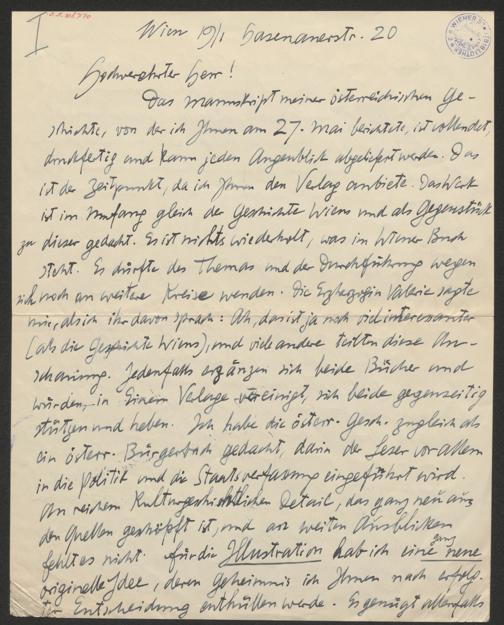 Wien 19/1 Hasenauerstr. 20
Hochverehrter Herr!
Das Manuskript meiner österreichischen Ge-
schichte, von der ich Ihnen am 27. Mai berichtete, ist vollendet,
druckfertig und kann jeden Augenblick abgeliefert werden. Das
ist der Zeitpunkt, da ich Ihnen den Verlag anbiete. Das Werk
ist im Umfang gleich der Geschichte Wiens und als Gegenstück
zu dieser gedacht. Es ist nichts wiederholt, was im Wiener Buch
steht. Es dürfte des Themas und der Durchführung wegen
sich noch an weitere Kreise wenden. Die Erzherzogin Valerie sagte
mir, als ich ihr davon sprach: Ah, das ist ja noch viel interessanter
(als die Geschichte Wiens), und viele andere teilten diese An-
schauung. Jedenfalls ergänzen sich beide Bücher und
würden, in Einem Verlage vereinigt, sich beide gegenseitig
stützen und heben. Ich habe die österr. Gesch. zugleich als
ein österr. Bürgerbuch gedacht, darin der Leser vor allem
in die Politik und die Staatsverfassung eingeführt wird.
An reichem kulturgeschichtlichen Detail, das ganz neu aus
den Quellen geschöpft ist, und an weiten Ausblicken
fehlt es nicht. Für die Illustration hab ich eine ganz neue
originelle Idee, deren Geheimnis ich Ihnen nach erfolg-
ter Entscheidung enthüllen werde. Es genügt allenfalls